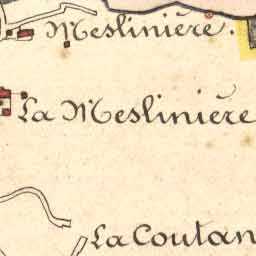 Meslinière.
La Meslinière
La Coutan